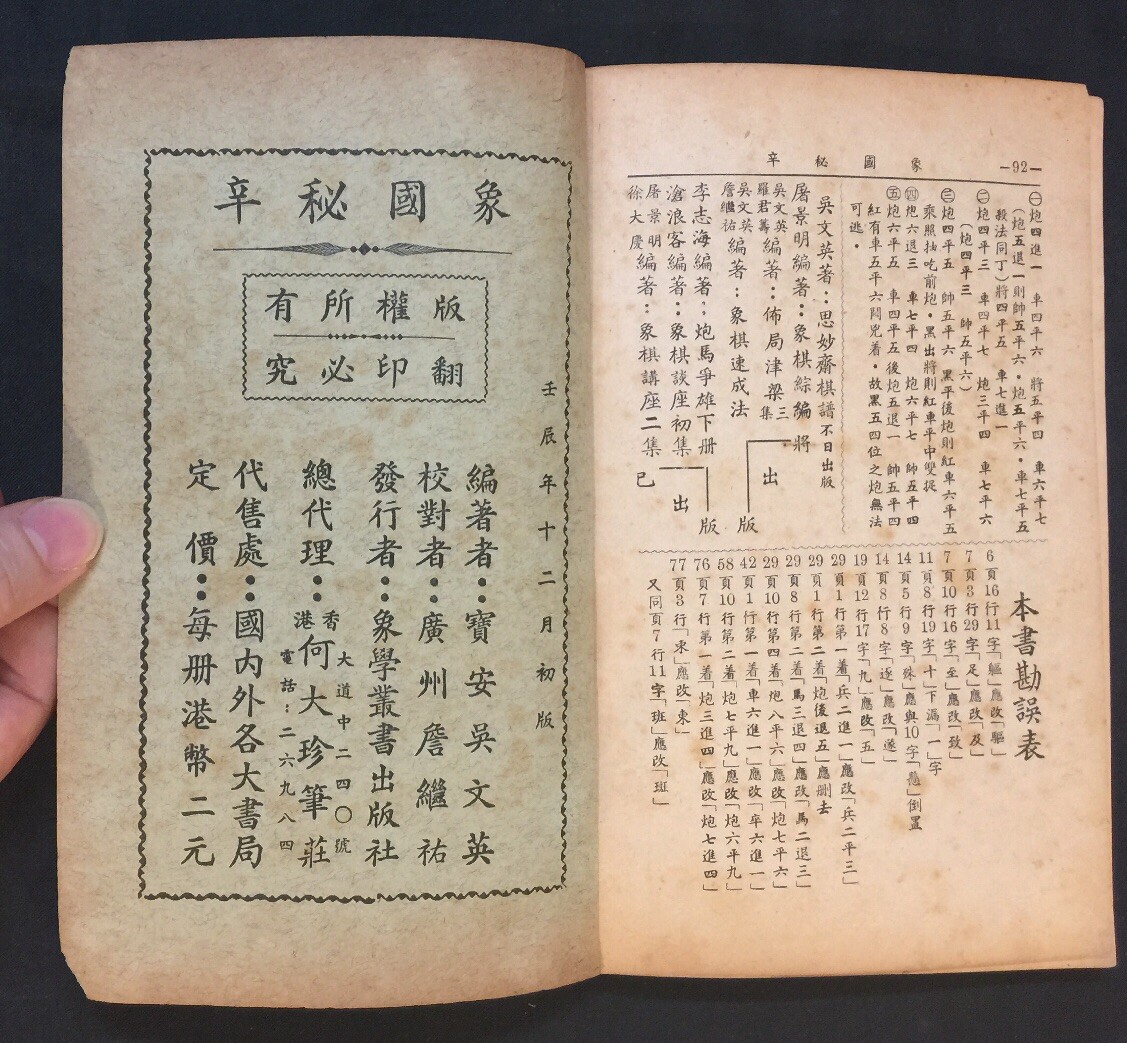 象國秘辛
—92—
㊀炮四進一 車四平六 將五平四 車六平七
(炮五退一則帥五平六・炮五平六・車七平五
殺法同丁)將四平五 車七進一
㊁炮四平三 車四平七 炮三平四 車七平六
(炮四平三 帥五平六)
㊂炮四平五 帥五平六 黑平後炮則紅車六平五
乘照抽吃前炮・黑出將則紅車平中雙捉
㊃炮六退三 車七平四 炮六平七 帥五平四
㊄炮六平五 車四平五後炮五退一 帥五平四
紅有車五平六悶兇着・故黑五四位之炮無法
可逃・
吳文英著：思妙齋棋譜不日出版
屠景明編著：象棋綜編 將
吳文英
羅君籌編著：佈局津梁三集
吳文英
詹繼祐編著：象棋速成法
出版
李志海編著，炮馬爭雄下册
滄浪客編著：象棋談座初集
屠景明
徐大慶編著：象棋講座二集
已出版
本書勘誤表
6頁16行11字「軀」應改「驅」
7頁3行29字「足」應改「及」
7頁10行16字「至」應改「致」
11頁8行19字「十」下漏「一」字
14頁5行9字「殊」應與10字「懸」倒置
14頁8行8字「逐」應改「遂」
19頁12行17字「九」應改「五」
29頁1行第一着「兵二進一」應改「兵二平三」
29頁1行第二着炮後退五」應刪去
29頁8行第二着「馬三退四」應改「馬二退三」
29頁10行第四着「炮八平六」應改「炮七平六」
42頁1行第一着「車六進一」應改「卒六進一」
58頁10行第二着「炮七平九」應改「炮六平九」
76頁7行第一着「炮三進四」應改「炮七進四」
77頁3行「宋」應改「束」
又同頁7行11字「班」應改「斑」
象國秘辛
版權所有
翻印必究
壬辰年十二月初版
編著者：寶安吳文英
校對者：廣州詹繼祐
發行者：象學叢書出版社
總代理：香港何大珍筆莊
大道中二四〇號
電話：二六九八四
代售處：國內外各大書局
定價：每册港幣二元